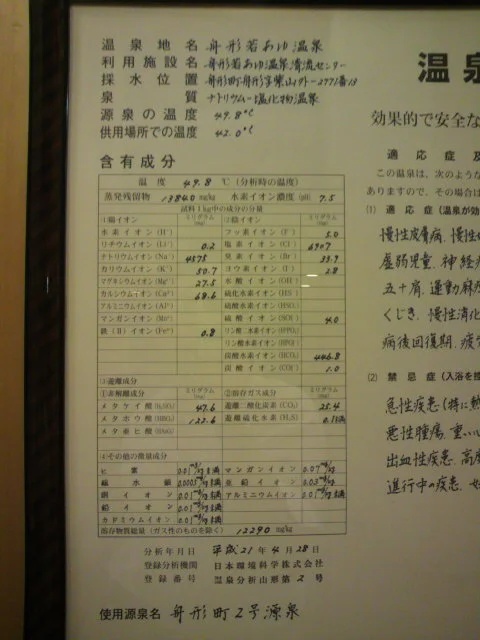 温泉地名 舟形若あゆ温泉
利用施設名 舟形若あゆ温泉清流センター
採水位置 舟形町舟形字紫山外-2771番13
泉質 ナトリウム-塩化物温泉
源泉の温度 49.8℃
供用場所での温度 42.0℃
含有成分
温度 49.8 ℃ (分析時の温度)
蒸発残留物 13840 mg/kg 水素イオン濃度(pH) 7.5
試料1kg中の成分の分量
①陽イオン ミリグラム(mg) ②陰イオン ミリグラム(mg)
水素イオン(H⁺) フッ素イオン(F⁻) 5.0
リチウムイオン(Li⁺) 0.2 塩素イオン(Cl⁻) 6907
ナトリウムイオン(Na⁺) 4575 臭素イオン(Br⁻) 33.9
カリウムイオン(K⁺) 50.7 ヨウ素イオン(I⁻) 2.8
マグネシウムイオン(Mg²⁺) 27.5 水酸イオン(OH⁻)
カルシウムイオン(Ca²⁺) 68.6 硫化水素イオン(HS⁻)
アルミニウムイオン(Al³⁺) 硫酸水素イオン(HSO₄⁻)
マンガンイオン(Mn²⁺) 硫酸イオン(SO₄²⁻) 4.0
鉄(Ⅱ)イオン(Fe²⁺) 0.8 リン酸二水素イオン(H₂PO₄⁻)
リン酸水素イオン(HPO₄²⁻)
炭酸水素イオン(HCO₃⁻) 446.8
炭酸イオン(CO₃²⁻) 1.0
③遊離成分
①非解離成分 ミリグラム(mg) ②溶存ガス成分 ミリグラム(mg)
メタケイ酸(H₂SiO₃) 47.6 遊離二酸化炭素(CO₂) 25.4
メタホウ酸(HBO₂) 122.6 遊離硫化水素(H₂S)
メタ亜ヒ酸(HAsO₂)
④その他の微量成分
ヒ素 0.01mg/kg未満 マンガンイオン 0.07mg/kg
総水銀 0.0005mg/kg未満 亜鉛イオン 0.03mg/kg
銅イオン 0.01mg/kg未満 アルミニウムイオン 0.01mg/kg未満
鉛イオン 0.01mg/kg未満
カドミウムイオン 0.01mg/kg未満
溶存物質総量(ガス性のものを除く) 12290 mg/kg
分析年月日 平成21年4月28日
登録分析機関 日本環境科学株式会社
登録番号 温泉分析山形第2号
使用源泉名 舟形町2号源泉
温泉
効果的で安全な
適応症及
この温泉は、次のような
ありますので、その場合は
(1) 適応症(温泉が効
慢性皮膚病、慢性
虚弱児童、神経
五十肩、運動麻
くじき、慢性消化
病後回復期、疲労
(2) 禁忌症(入浴を控
急性疾患(特に熱
悪性腫瘍、重い
出血性疾患、高度
進行中の疾患、